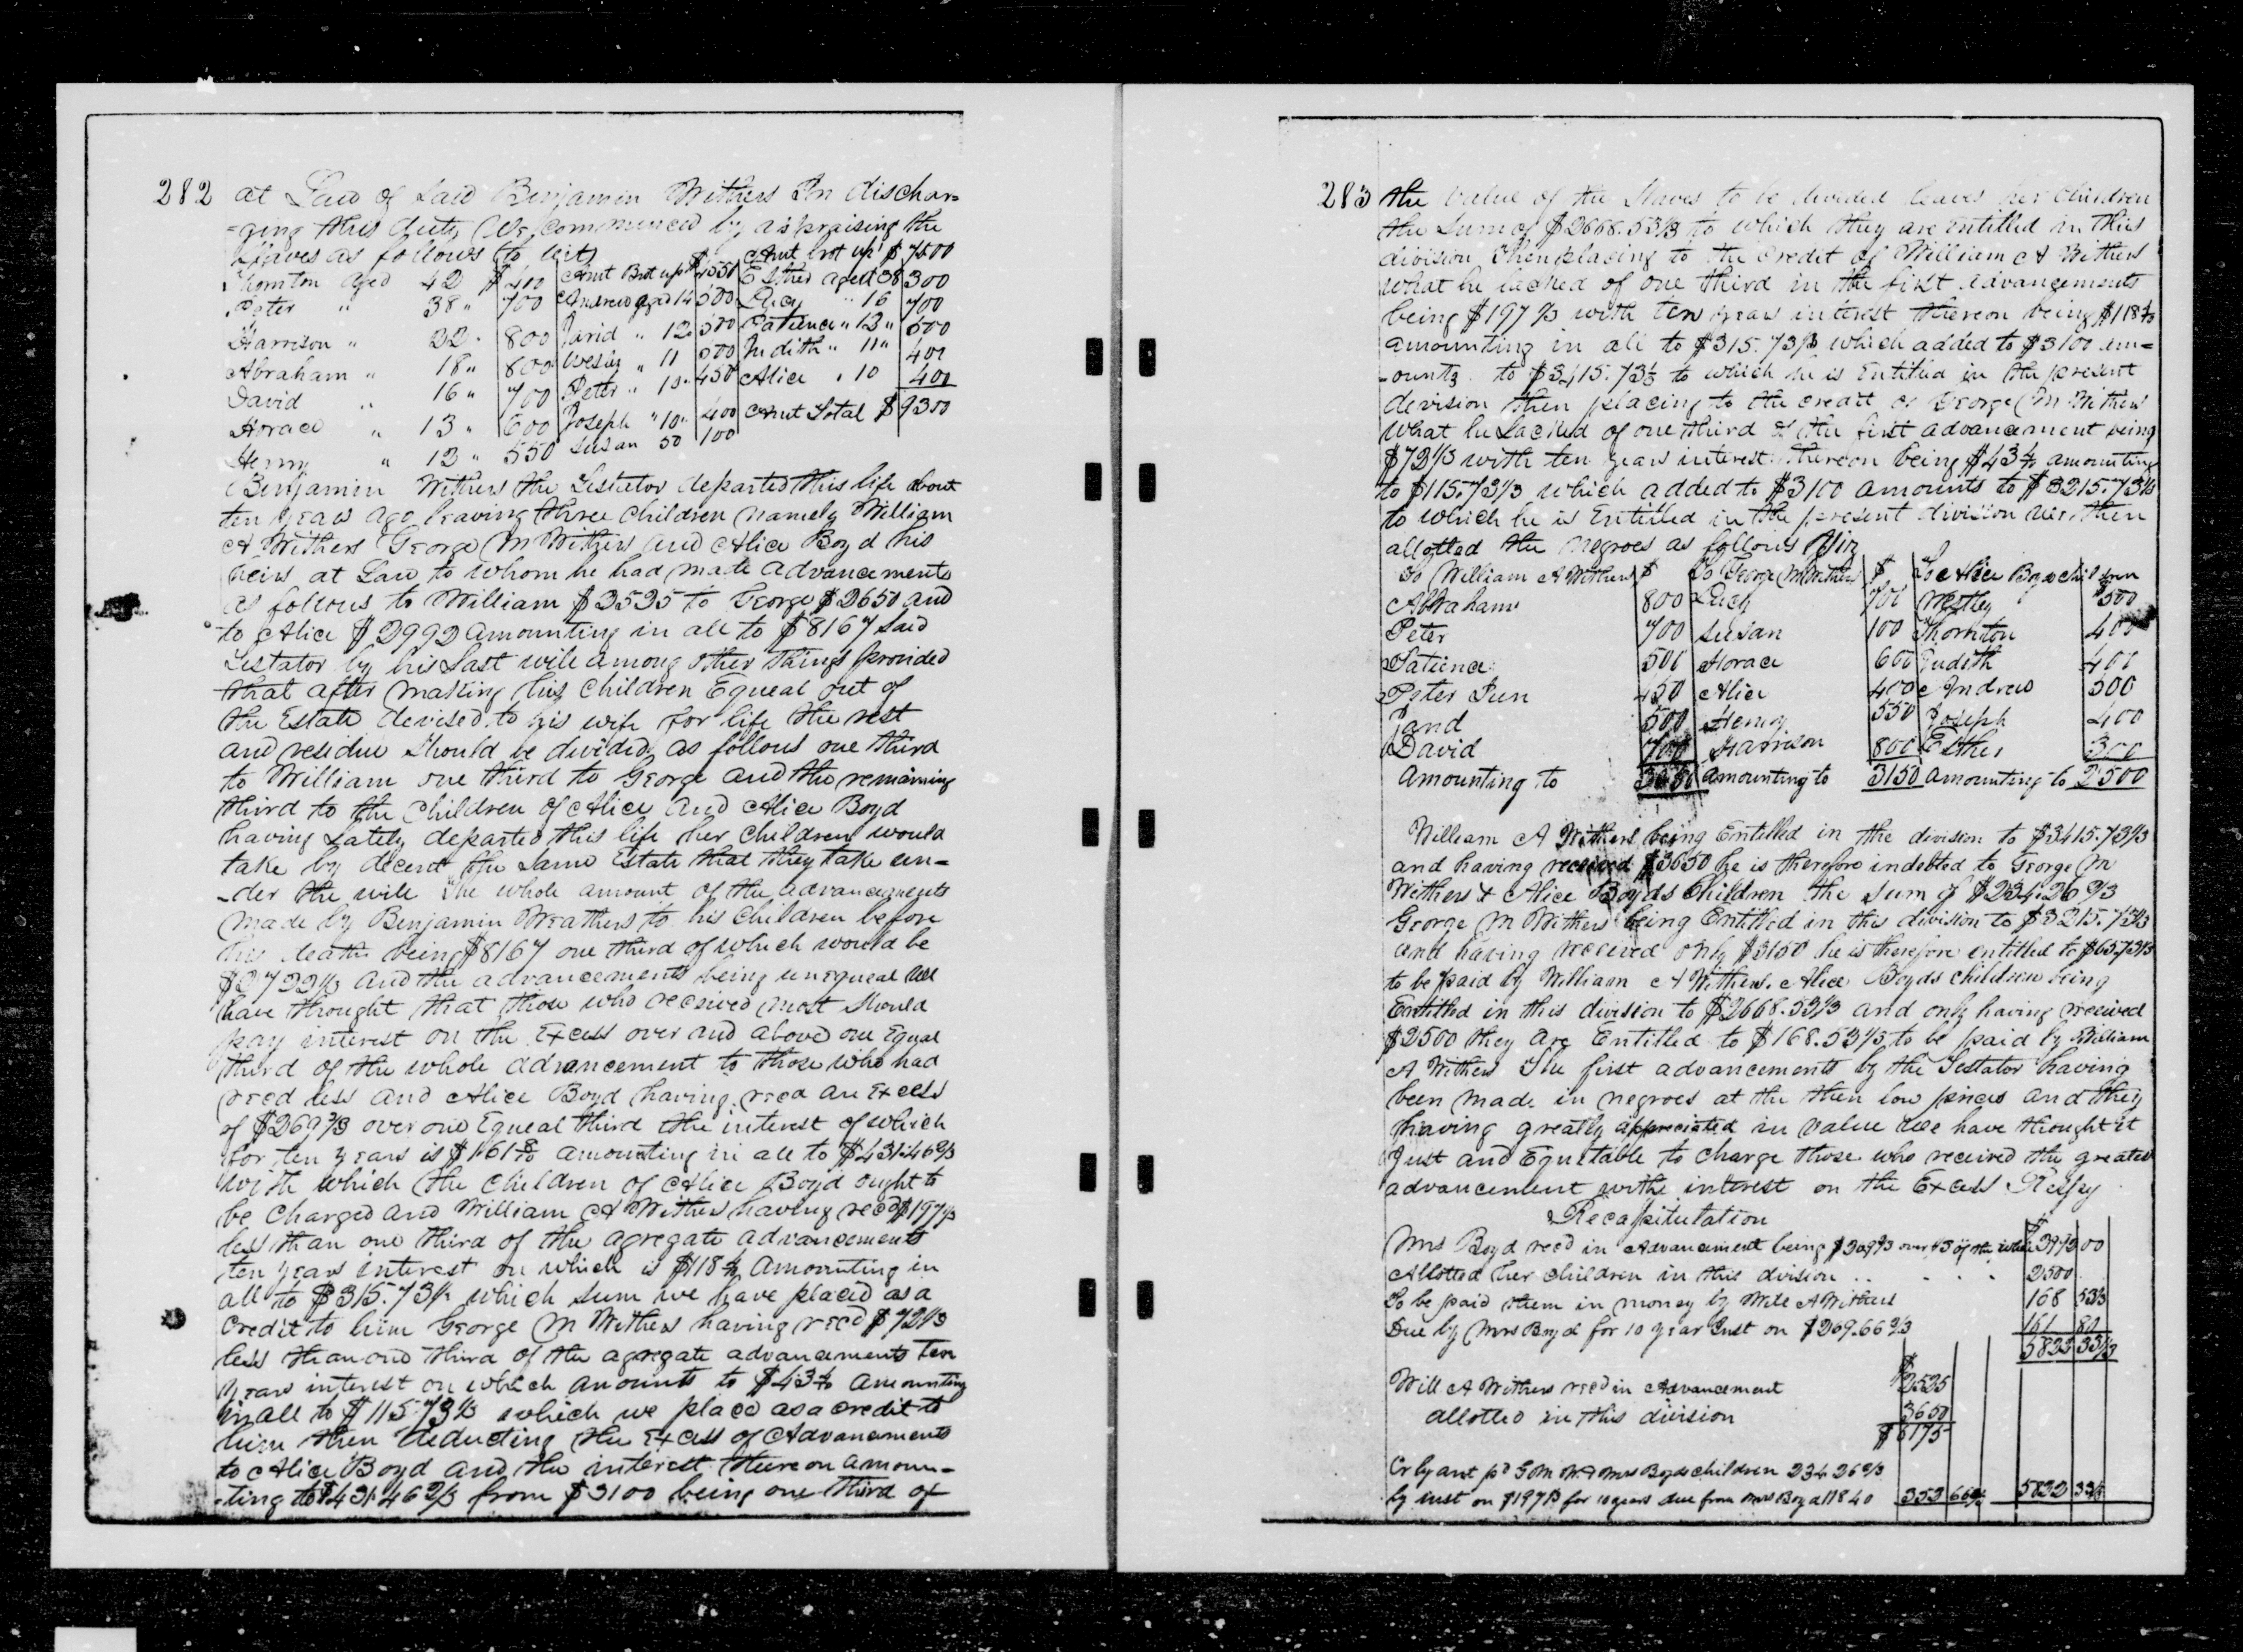 282 at Law of Said Benjamin Withers In dischar=
=ging this duty We commenced by aspraising the
slaves as follows (to wit)
Thornton aged 42 $ 400
Peter " 38 " 700
Harrison " 22 " 800
Abraham " 18 " 800
David " 16 " 700
Horace " 13 " 600
Henry " 12 " 550
Amt Brt up $ 4550
Andrew aged 14 500
Jarid " 12 500
Wesley " 11 500
Peter " 10 " 450
Joseph " 10 " 400
Susan 50 100
Amt brot up $ 7500
Esther aged 38 300
Lucy " 16 700
Patience " 12 " 500
Judith " 11 " 400
Alice " 10 400
Amt Total $ 9300
Benjamin Withers the Testator departed this life about
ten years ago leaving three Children namely William
A Withers George M Withers and Alice Boyd his
heirs at Law to whom he had made advancements
as follows to William $2525 to George $2650 and
to Alice $2992 amounting in all to $8167 Said
Testator by his Last will among other things provided
that after making his Children Equeal out of
the Estate devised to his wife for life the rest
and residue Should be divided as follows one third
to William one third to George and the remaining
third to the Children of Alice and Alice Boyd
having Lately departed this life her Children would
take by decent the Same Estate that they take un-
-der the will The whole amount of the advancements
made by Benjamin Weathers to his Children before
his death being $8167 one third of which would be
$2722 1/3 and the advancements being unequeal We
have thought that those who received most Should
pay interest on the Excess over and above one Equal
third of the whole advancement to those who had
recd less and Alice Boyd having recd an Excess
of $269 2/3 over one Equeal third the interest of which
for ten years is $161 8/10 amounting in all to $431.46 2/3
with which the Children of Alice Boyd ought to
be Charged and William A Withers having recd $197 1/3
less than one third of the agregate advancements
ten years interest on which is $118 4/10 Amounting in
all to $315.73 1/3 which Sum we have placed as a
Credit to him George M Withers having recd $72 1/3
less than one third of the agregate advancements ten
years interest on which amounts to $43 4/10 amounting
in all to $115.73 1/3 which we place as a credit to
him then deducting the Excess of Advancements
to Alice Boyd and the interest thereon amoun-
-ting to $431.46 2/3 from $3100 being one third of
283 the value of the Slaves to be divided leaves her Children
the Sum of $2668.53 1/3 to which they are entitled in this
division then placing to the Credit of William A Withers
what he lacked of one third in the first advancements
being $197 1/3 with ten years interest thereon being $118 4/10
amounting in all to $315.73 1/3 which added to $3100 am-
-ounts to $3415.73 1/3 to which he is Entitled in the present
devision then placing to the credit of George M Withers
what he Lacked of one third of the first advancement being
$72 1/3 with ten years interest thereon being $43 4/10 amounting
to $115.73 1/3 which added to $3100 amounts to $3215.73 1/3
to which he is Entitled in the present division We then
allotted the negroes as follows Viz
To William A Withers $
Abraham 800
Peter 700
Patience 500
Peter Jun 450
Jarid 500
David 700
Amounting to 3650
To George M Withers $
Lucy 700
Susan 100
Horace 600
Alice 400
Henry 550
Harrison 800
amounting to 3150
To Alice Boyds Children
Westley 500
Thornton 400
Judith 400
Andrew 500
Joseph 400
Esther 300
amounting to 2500
William A Withers being Entitled in the division to $3415.73 1/3
and having received $3650 he is therefore indebted to George M
Withers & Alice Boyds Children the Sum of $234.26 2/3
George M Withers being Entitled in this division to $3215.73 1/3
and having received only $3150 he is therefore entitled to $65.73 1/3
to be paid by William A Withers. Alice Boyds children being
Entitled in this division to $2668.53 1/3 and only having received
$2500 they are Entitled to $168.53 1/3 to be paid by William
A Withers The first advancements by the Testator having
been made in negroes at the then low prices and they
having greatly appreciated in value We have thought it
Just and Equitable to Charge those who received the greater
advancement withe interest on the Excess
Recapitulation
Mrs Boyd recd in Advancement being $269 2/3 over 1/3 of the whole $2992 00
Allotted her children in this division 2500
To be paid them in money by Will A Withers 168 53 1/3
Due by Mrs Boyd for 10 year Inst on $269.66 2/3 161 80
5822 33 1/3
Will A Withers recd in Advancement $2525
allotted in this division 3650
$ 6175
Cr by amt pd G M W & Mrs Boyds children 234 26 2/3
by inst on $197 1/3 for 10 years due from Mrs Boyd 118 40 352 66 2/3 5822 33 1/3